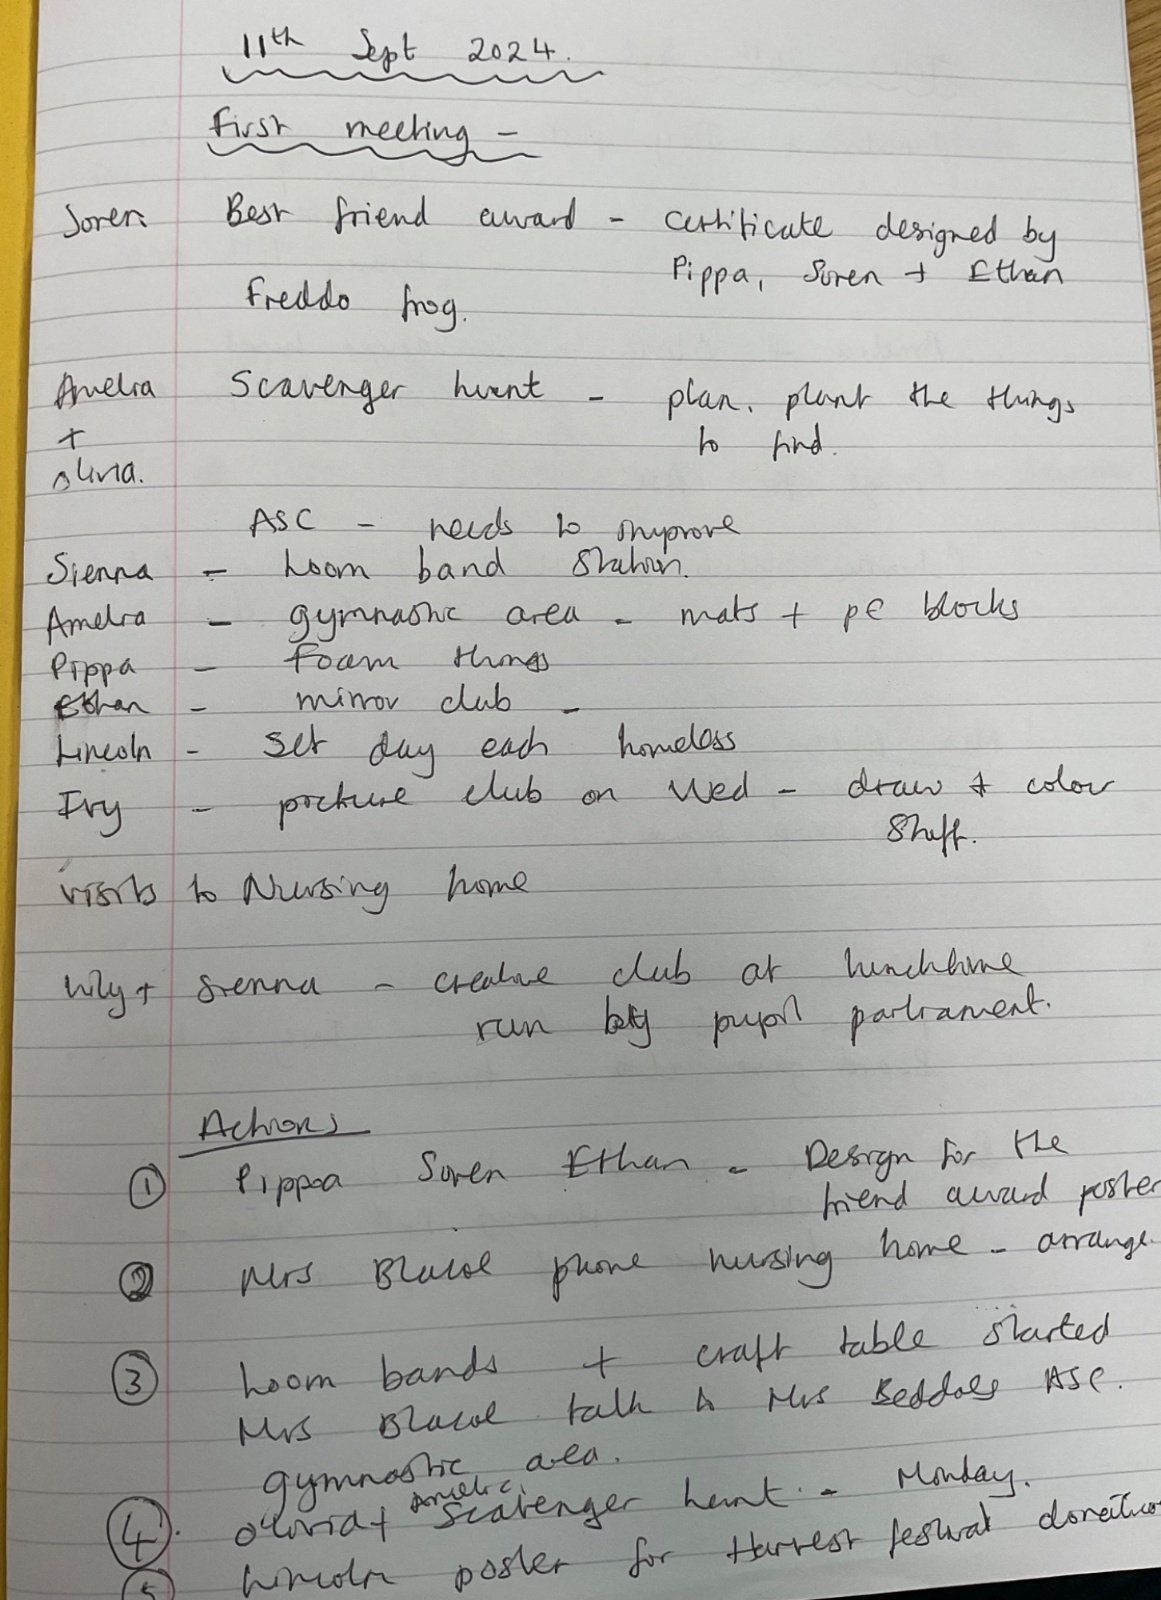 11th Sept 2024.
First meeting -
Soren Best friend award - certificate designed by
Pippa, Soren + Ethan
Freddo frog.
Amelia Scavenger hunt - plan, plant the things
+ to find.
Olivia.
ASC - needs to improve
Sienna - Loom band station.
Amelia - gymnastic area - mats + PE blocks
Pippa - Foam things
Ethan - mirror club -
Lincoln - set day each homeless
Ivy - picture club on Wed - draw + color
stuff.
visits to Nursing home
Lily + Sienna - creative club at lunchtime
run by pupil parliament.
Actions
① Pippa Soren Ethan - Design for the
friend award poster
② Mrs phone nursing home - arrange.
③ Loom bands + craft table started
Mrs talk to Mrs ASC.
gymnastic area.
④. Olivia + Amelia Scavenger hunt. - Monday.
⑤ Lincoln poster for Harvest festival